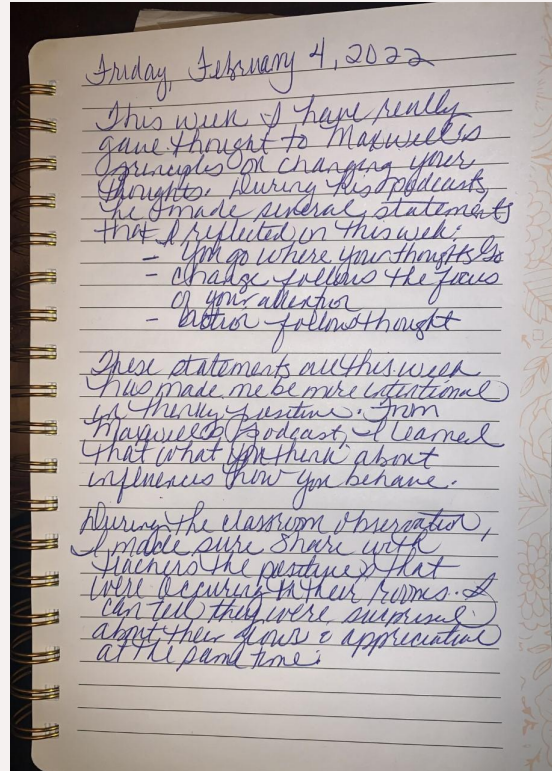 Friday, February 4, 2022
This week I have really
gave thought to Maxwell's
principles on changing your
thoughts. During his podcasts,
he made several statements
that I reflected on this week:
- You go where your thoughts go
- Change follows the focus
of your attention
- Action follows thought
These statements all this week
has made me be more intentional
in thinking positive. From
Maxwell's Podcast, I learned
that what you think about
influences how you behave.
During the classroom observation,
I made sure share with
teachers the positives that
were occuring in their rooms. I
can tell they were surprised
about their & appreciative
at the same time.